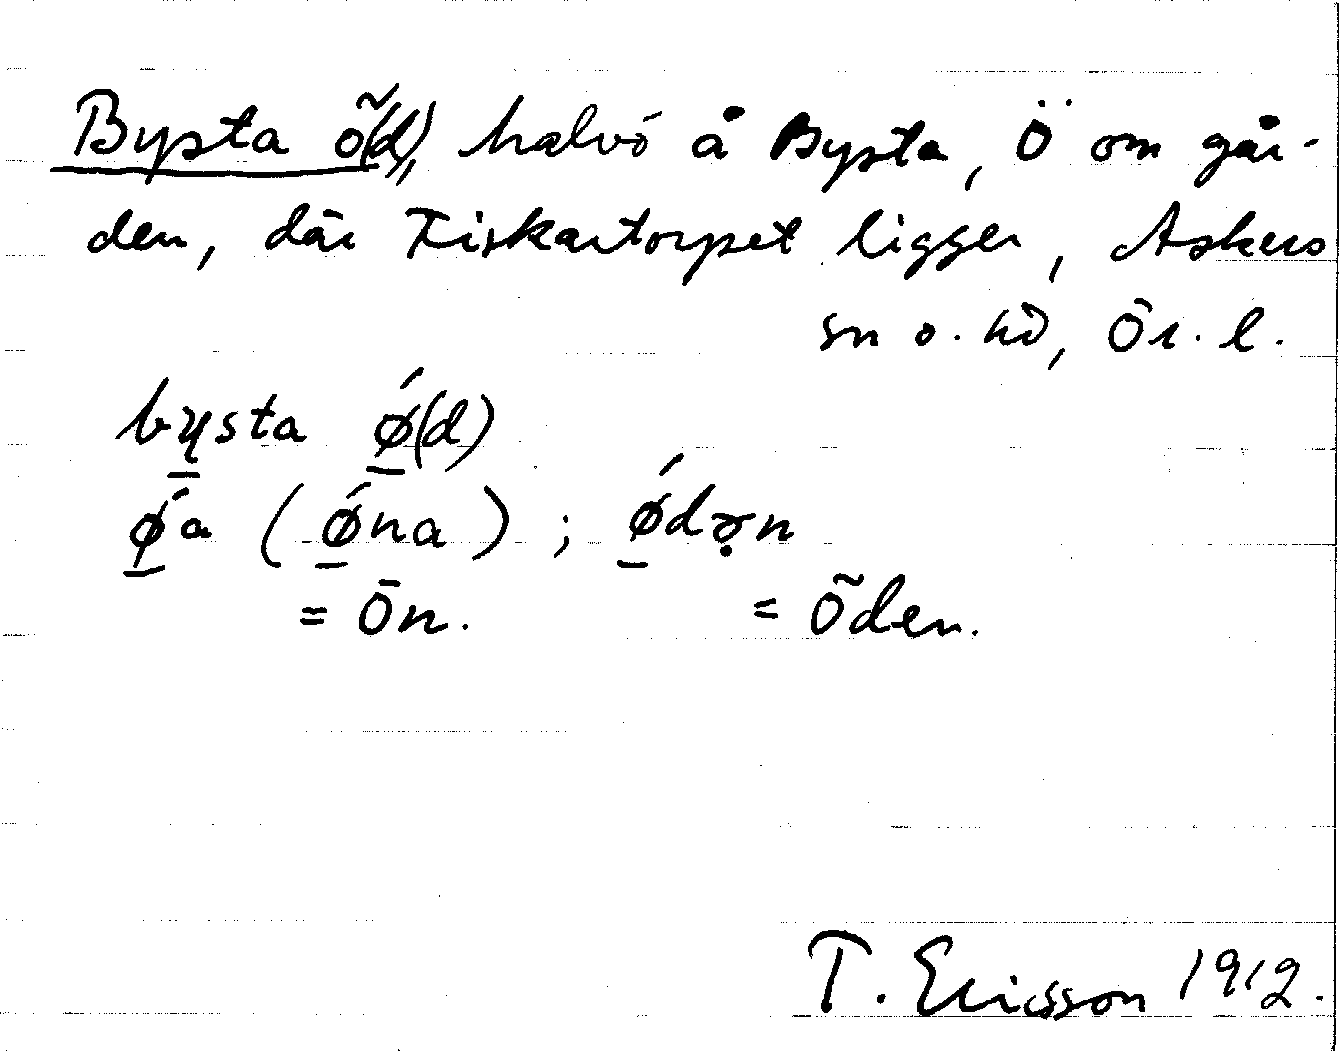 Bysta ö(d), halvö å Bysta, Ö om går-
den, där Fiskartorpet ligger, Askers
sn o. hd, Ör. l.
bysta ǿ(d)
ǿa (ǿna); ǿdən
= Ön. = Öden.
T. Ericsson 1912.